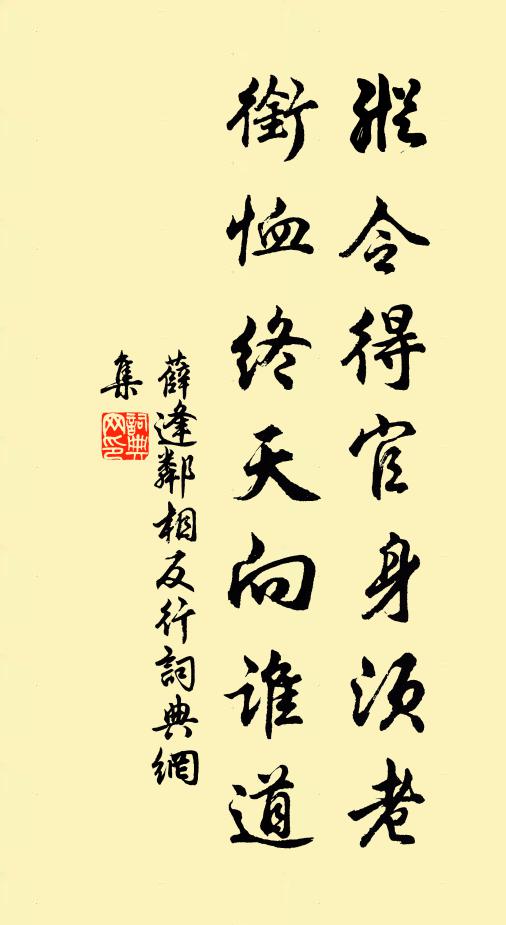 縱令得官身須老
銜恤終天向誰道
薛逢鄰相反行詞典網
集
詞典
网印